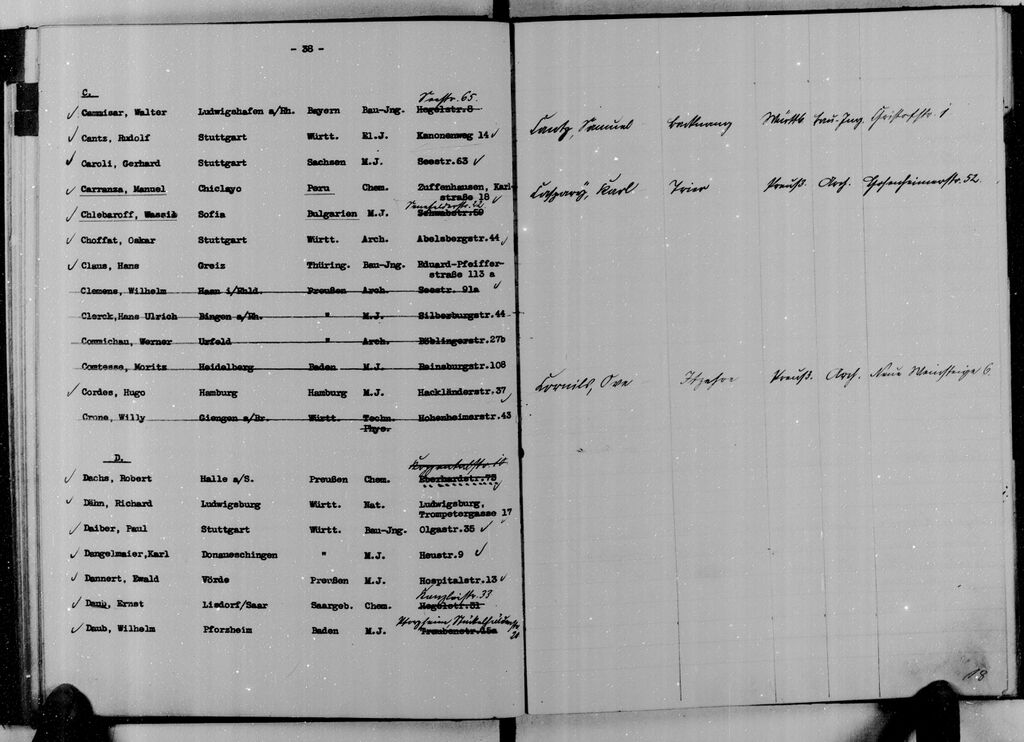 - 38 -
C.
Seestr. 65.
Cammisar, Walter Ludwigshafen a/Rh. Bayern Bau-Jng. Hegelstr.8
Cantz, Rudolf Stuttgart Württ. El.J. Kanonenweg 14
Caroli, Gerhard Stuttgart Sachsen M.J. Seestr.63
Carranza, Manuel Chiclayo Peru Chem. Zuffenhausen, Karl-
straße 18
Chlebaroff, Wassil Sofia Bulgarien M.J. Schwabstr.59
Choffat, Oskar Stuttgart Württ. Arch. Abelsbergstr.44
Claus, Hans Greiz Thüring. Bau-Jng. Eduard-Pfeiffer-
straße 113 a
Clemens, Wilhelm Haan i/Rhld. Preußen Arch. Seestr. 91a
Clerck,Hans Ulrich Bingen a/Rh. " M.J. Silberburgstr.44
Commichau, Werner Urfeld " Arch. Böblingerstr.27b
Comtesse, Moritz Heidelberg Baden M.J. Reinsburgstr.108
Cordes, Hugo Hamburg Hamburg M.J. Hackländerstr.37
Crone, Willy Giengen a/Br. Württ. Techn. Hohenheimerstr.43
Phys.
D.
Dachs, Robert Halle a/S. Preußen Chem. Eberhardstr.75
Dähn, Richard Ludwigsburg Württ. Nat. Ludwigsburg,
Trompetergasse 17
Daiber, Paul Stuttgart Württ. Bau-Jng. Olgastr.35
Dangelmaier,Karl Donaueschingen " M.J. Heustr.9
Dannert, Ewald Vörde Preußen M.J. Hospitalstr.13
Kanzleistr. 33
Daub, Ernst Lisdorf/Saar Saargeb. Chem. Hegelstr.51
Pforzheim,
Daub, Wilhelm Pforzheim Baden M.J. Traubenstr.45a
20
Cantz, Samuel Backnang Württb Bau-Ing. Christofstr. 1
Caspary, Karl Trier Preuß. Arch. Hohenheimerstr. 52.
Cornils, Ove Itzehoe Preuß. Arch. Neue Weinsteige 6
18